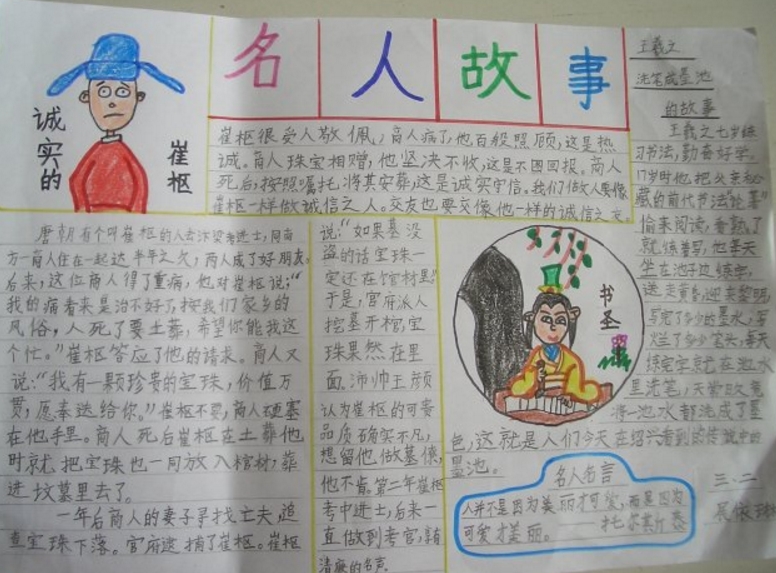 名人故事
诚实的
崔枢
崔枢很受人敬佩，商人病了，他百般照顾，这是热
诚。商人珠宝相赠，他坚决不收，这是不图回报。商人
死后，按照嘱托，将其安葬，这是诚实守信。我们做人要像
崔枢一样做诚信之人。交友也要交像他一样的诚信之交。
唐朝有个叫崔枢的人去汴梁考进士，同南
方一商人住在一起达半年之久，两人成了好朋友，
后来，这位商人得了重病，他对崔枢说：“
我的病看来是治不好了，按我们家乡的
风俗，人死了要土葬，希望你能我这
个忙。”崔枢答应了他的请求。商人又
说：“我有一颗珍贵的宝珠，价值万
贯，愿奉送给你。”崔枢不要，商人硬塞
在他手里。商人死后崔枢在土葬他
时就把宝珠也一同放入棺材，葬
进坟墓里去了。
一年后商人的妻子寻找亡夫，追
查宝珠下落。官府逮捕了崔枢。崔枢
说：“如果墓没
盗的话宝珠一
定还在馆材里”
于是，官府派人
挖墓开棺，宝
珠果然在里
面。沛帅王颜
认为崔枢的可贵
品质确实不凡，
想留他做幕僚，
他不肯。第二年崔枢
考中进士，后来一
直做到考官，享有
清廉的名声。
王羲之
洗笔成墨池
的故事
王羲之七岁练
习书法，勤奋好学。
17岁时他把父亲秘
藏的前代书法论著
偷来阅读，看熟了
就练着写，他每天
坐在池子边练字，
送走黄昏，迎来黎明，
写完了多少的墨水，写
烂了多少笔头，每天
练完字就在池水
里洗笔，天长
将一池水都洗成了墨
色，这就是人们今天在绍兴看到的传说中的
墨池。
书圣
名人名言
人并不是因为美丽才可爱，而是因为
可爱才美丽。 托尔斯泰
三.二